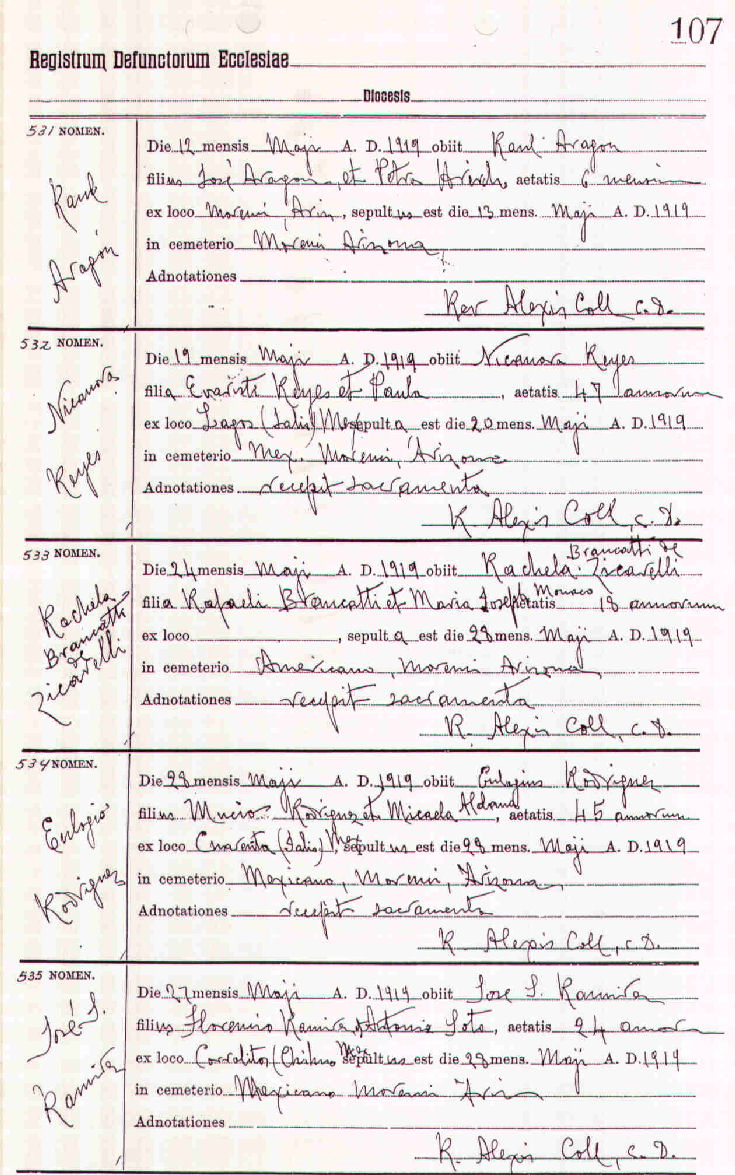 107
Registrum Defunctorum Ecclesiae
Diocesis
531 NOMEN.
Raul
Aragón
Die 12 mensis Maji A. D. 1919 obiit Raul Aragon
filius José Aragon et Petra aetatis 6 mensium
ex loco Morenci Ariz, sepultus est die 13 mens. Maji A. D. 1919
in cemeterio Morenci Arizona
Adnotationes
Rev Alexis Coll c.d.
532 NOMEN.
Nicanora
Reyes
Die 19 mensis Maji A. D. 1919 obiit Nicanora Reyes
filia Evaristi Reyes et Paula, aetatis 47 annorum
ex loco Lagos (Jalis) Mex sepulta est die 20 mens. Maji A. D. 1919
in cemeterio Mex. Morenci, Arizona
Adnotationes recepit sacramenta
R. Alexis Coll, c.d.
533 NOMEN.
Rachela
Brancatti
de
Zicarelli
Brancatti de
Die 24 mensis Maji A. D. 1919 obiit Rachela Zicarelli
filia Rafaeli Brancatti et Maria Josepha Monaco aetatis 18 annorum
ex loco , sepulta est die 28 mens. Maji A. D. 1919
in cemeterio Americano, Morenci Arizona
Adnotationes recepit sacramenta
R. Alexis Coll, c.d.
534 NOMEN.
Eulogio
Rodriguez
Die 28 mensis Maji A. D. 1919 obiit Eulogius Rodriguez
filius Rodriguez et Micaela Aldana, aetatis 45 annorum
ex loco (Jalis) Mex sepultus est die 28 mens. Maji A. D. 1919
in cemeterio Mexicano, Morenci, Arizona
Adnotationes recepit sacramenta
R. Alexis Coll, c.d.
535 NOMEN.
José S.
Ramirez
Die 27 mensis Maji A. D. 1919 obiit José S. Ramirez
filius Ramirez & Antonia Soto, aetatis 24 annor
ex loco Corralitos (Chihua Mex sepultus est die 28 mens. Maji A. D. 1919
in cemeterio Mexicano Morenci Ariz
Adnotationes
R. Alexis Coll, c.d.